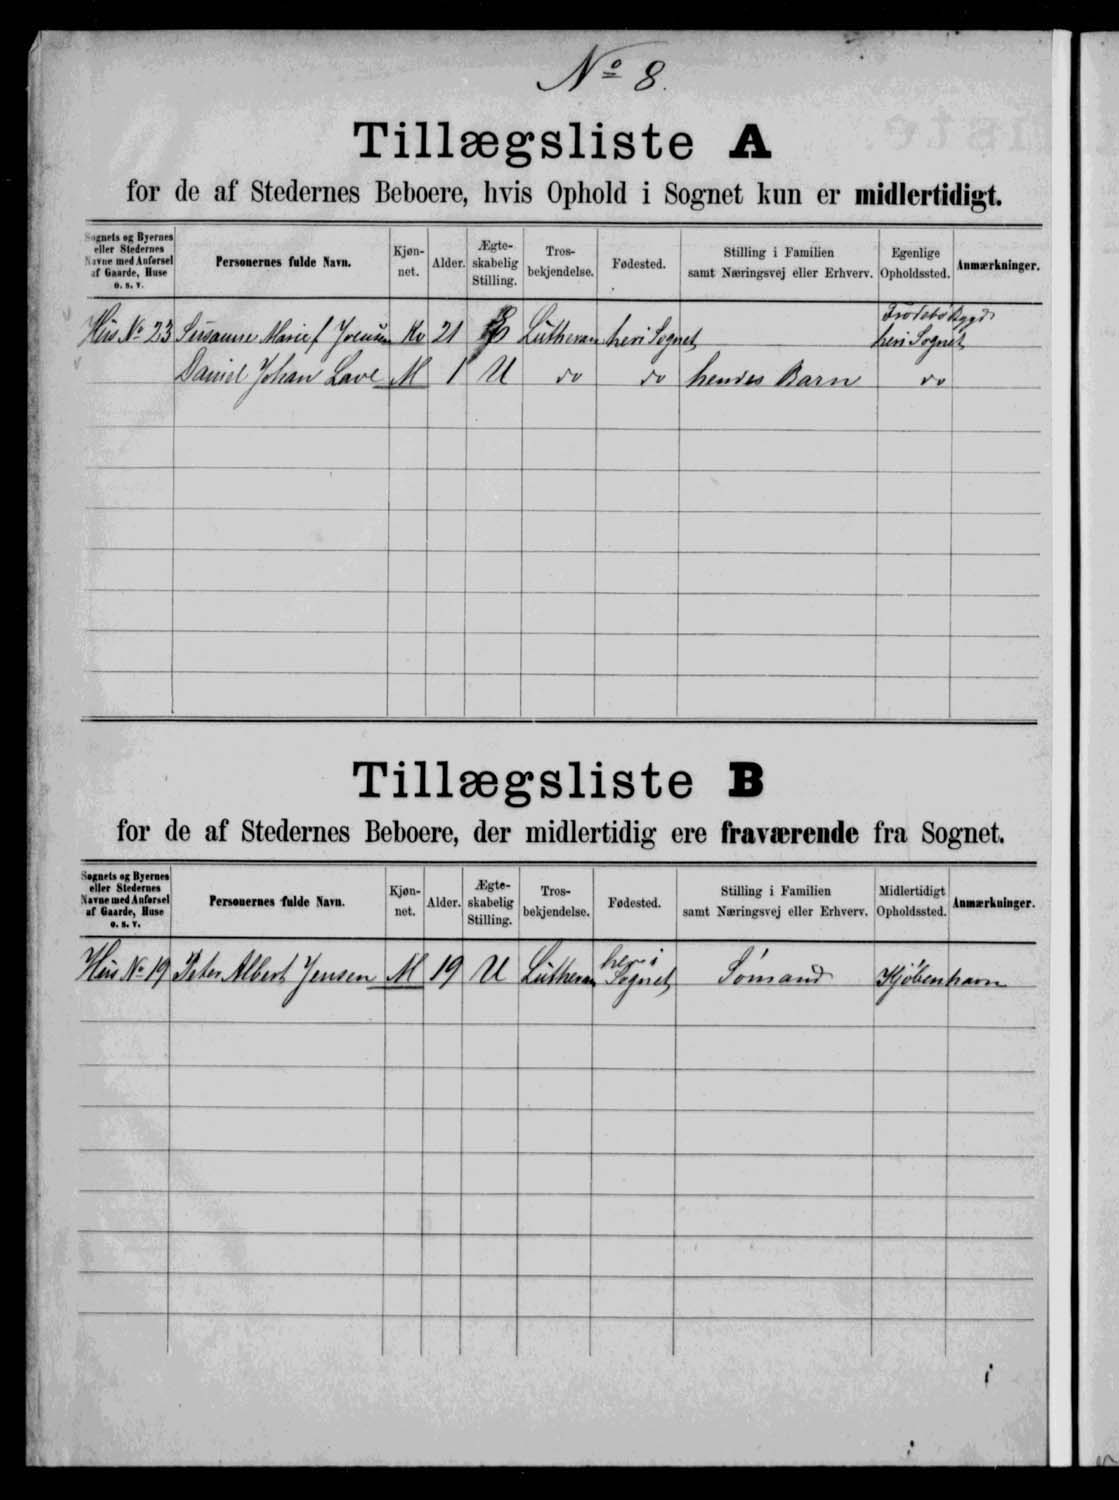 No 8.
Tillægsliste A
for de af Stedernes Beboere, hvis Ophold i Sognet kun er midlertidigt.
Sognets og Byernes eller Stedernes Navne med Anførsel af Gaarde, Huse o. s. v. | Personernes fulde Navn. | Kjøn-net. | Alder. | Ægte-skabelig Stilling. | Tros-bekjendelse. | Fødested. | Stilling i Familien samt Næringsvej eller Erhverv. | Egenlige Opholdssted. | Anmærkninger.
Hus No 23 Susanne Marie f Joensen Kv 21 Lutheran heri Sognet Frodebø Bygd heri Sognet
Daniel Johan M 1 U do do hendes Barn do
Tillægsliste B
for de af Stedernes Beboere, der midlertidig ere fraværende fra Sognet.
Sognets og Byernes eller Stedernes Navne med Anførsel af Gaarde, Huse o. s. v. | Personernes fulde Navn. | Kjøn-net. | Alder. | Ægte-skabelig Stilling. | Tros-bekjendelse. | Fødested. | Stilling i Familien samt Næringsvej eller Erhverv. | Midlertidigt Opholdssted. | Anmærkninger.
Hus No 19 Peter Albert Jensen M 19 U Lutheran heri Sognet Sömand Kjöbenhavn